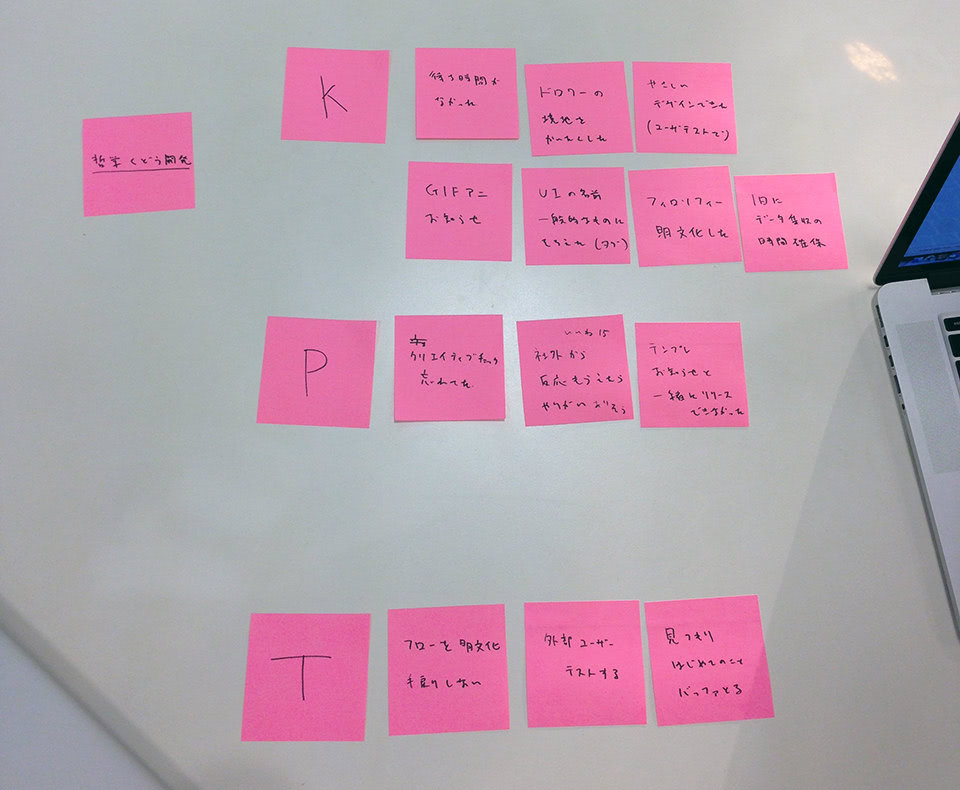 哲学くどう開発
K
待つ時間が
なかった
ドロワーの
境地を
やさしい
デザインできた
(ユーザテストで)
GIFアニ
お知らせ
UIの名前
一般的なものに
もらえた(タブ)
フィロソフィー
明文化した
1日に
データ集収の
時間確保
P
クリエイティブチェック
忘れてた
いいね15
社外から
反応もらえたら
やりがいありそう
テンプレ
お知らせと
一緒にリリース
できなかった
T
フローを明文化
手戻りしない
外部ユーザー
テストする
見つもり
はじめてのこと
バッファとる